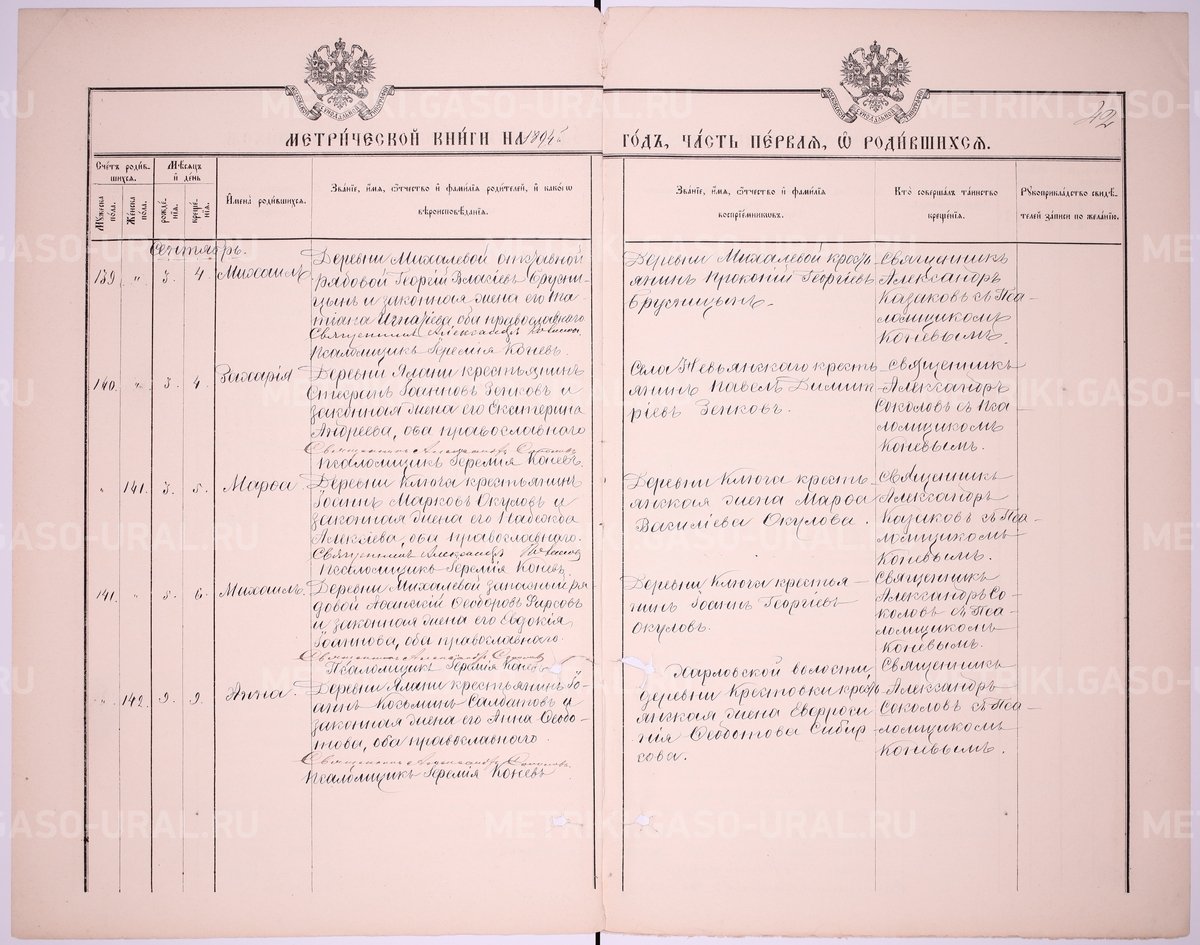 МЕТРИ́ЧЕСКОЙ КНИ́ГИ НА 1894й
ГО́ДЪ, ЧА́СТЬ ПЕ́РВАЯ, Ѿ РОДИ́ВШИХСЯ.
42
Сче́тъ роди́в-
шихся.
Му́жеска по́ла.
Же́нска по́ла.
Мѣ́сяцъ
и҆ де́нь
рожде́-
нія.
креще́-
нія.
И҆мена̀ роди́вшихся.
Зва́ніе, и҆́мя, ѻ҆́тчество и҆ фамн́лія роди́телей, и҆ како́гѡ
вѣроисповѣ́данія.
Зва́ніе, и҆́мя, ѻ҆́тчество и҆ фами́лія
воспрїе́мниковъ.
Кто̀ соверша́лъ та́инство
креще́нія.
Рꙋкоприкла́дство свидѣ́-
телей за́писи по жела́нію.
Сентябрь.
139 „ 3. 4. Михаилъ.
Деревни Михалевой отставной
рядовой Георгій Власіевъ Брусни-
цынъ и законная жена его Та-
тіана Игнатіева, оба православнаго
Священникъ Александръ Казаковъ
Псаломщикъ Іеремія Коневъ.
Деревни Михалевой кресть-
янинъ Прокопій Георгіевъ
Брусницынъ.
Священникъ
Александръ
Казаковъ съ Пса-
ломщикомъ
Коневымъ.
140. „ 3. 4. Захарія
Деревни Ялани крестьянинъ
Стефанъ Іоанновъ Зенковъ и
законная жена его Екатерина
Андреева, оба православнаго
Священникъ Александръ Соколовъ
Псаломщикъ Іеремія Коневъ.
Села Невьянскаго кресть-
янинъ Павелъ Димит-
ріевъ Зенковъ.
Священникъ
Александръ
Соколовъ съ Пса-
ломщикомъ
Коневымъ.
„ 141. 3. 5. Марѳа.
Деревни Ключа крестьянинъ
Іоаннъ Марковъ Окуловъ и
законная жена его Надежда
Алексіева, оба православнаго.
Священникъ Александръ Казаковъ
Псаломщикъ Іеремія Коневъ.
Деревни Ключа кресть-
янская жена Марѳа
Василіева Окулова.
Священникъ
Александръ
Казаковъ съ Пса-
ломщикомъ
Коневымъ.
141. „ 5. 6. Михаилъ.
Деревни Михалевой запасной ря-
довой Ѳеодоровъ
и законная жена его Евдокія
Іоаннова, оба православнаго.
Священникъ Александръ Соколовъ
Псаломщикъ Іеремія Коневъ
Деревни Ключа крестья-
нинъ Іоаннъ Георгіевъ
Окуловъ.
Священникъ
Александръ Со-
коловъ съ Пса-
ломщикомъ
Коневымъ.
„ 142. 9. 9. Анна.
Деревни Ялани крестьянинъ Іо-
аннъ Козьминъ Салдатовъ и
законная жена его Анна Ѳеодо-
това, оба православнаго.
Священникъ Александръ Соколовъ
Псаломщикъ Іеремія Коневъ
Харловской волости,
деревни Крестовки кресть-
янская жена Евфроси-
нія Ѳеодотова
Священникъ
Александръ
Соколовъ съ Пса-
ломщикомъ
Коневымъ.
METRIKI.GASO-URAL.RU